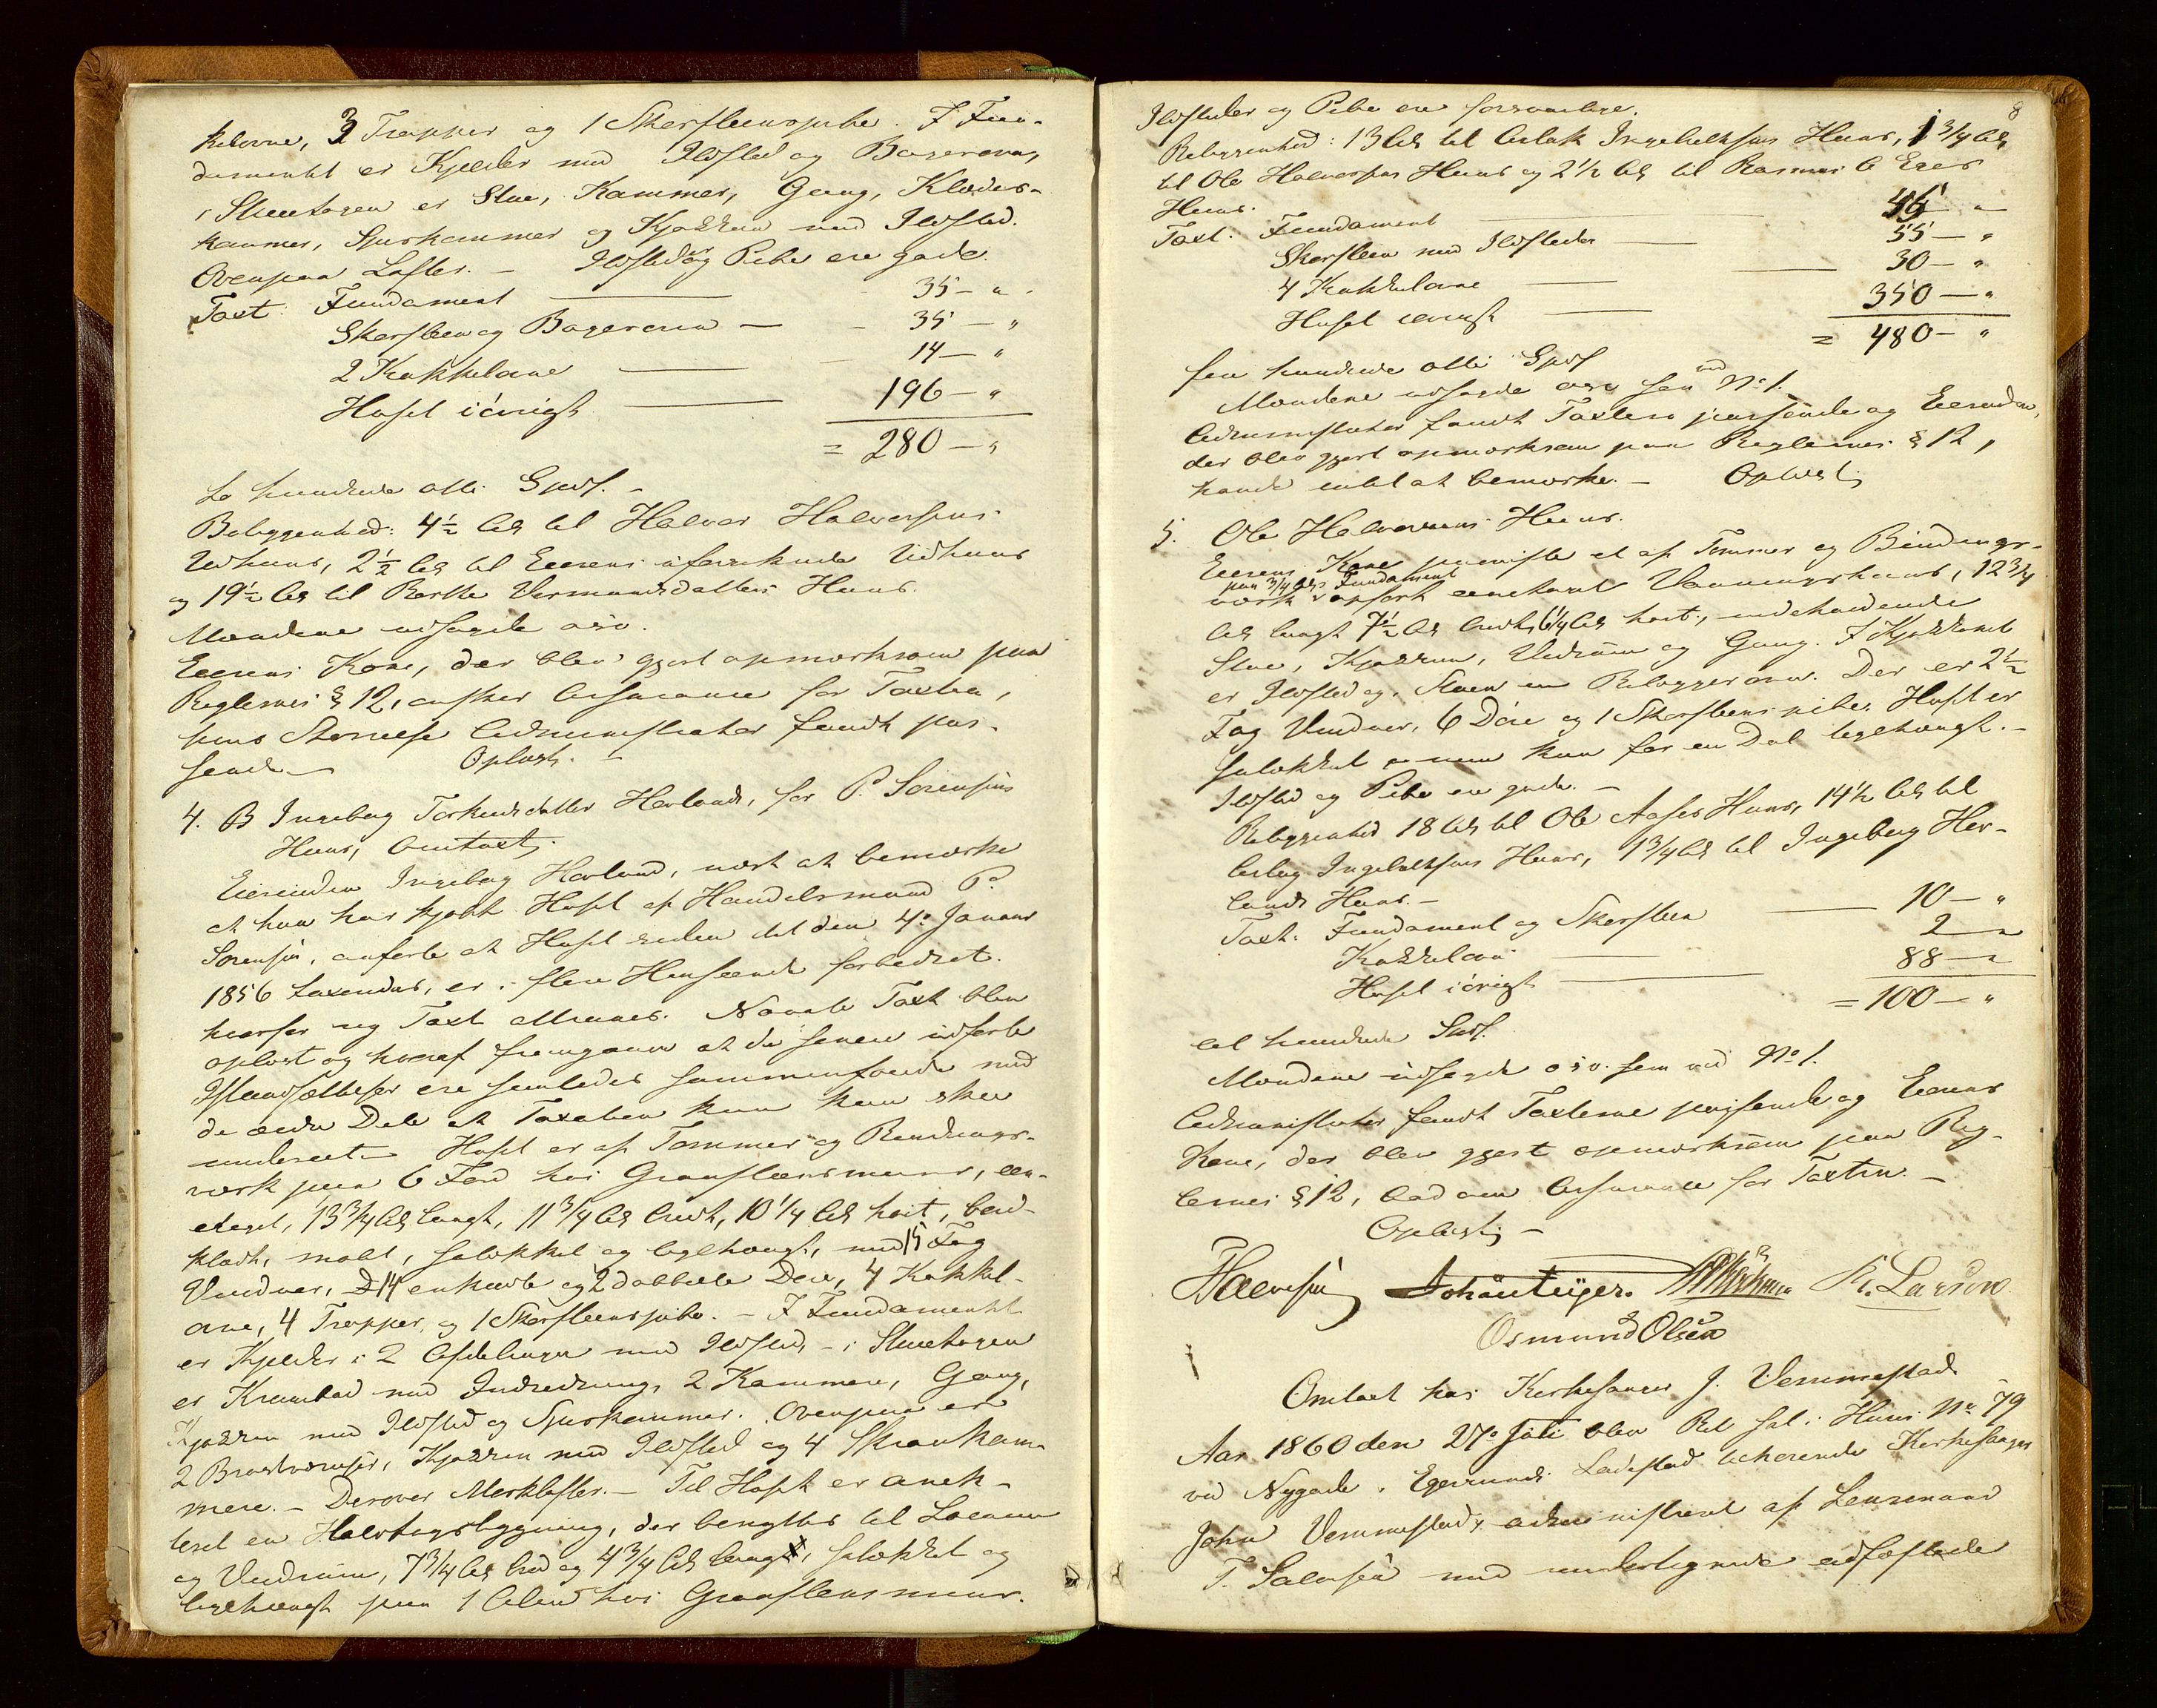 kelovne, 3 Trapper og 1 Skorsteenspibe. I Fun-
damentet er Kjelder med Ildsted og Bagerovn,
i Stueetagen er Stue, Kammer, Gang, Klæde-
kammer, Spiskammer og Kjøkken med Ildsted.
Ovenpaa Lofter. – Ildsted og Pibe ere gode.
Taxt. Fundament 35 – "
Skorsteen og Bagerovn 35 – "
2 Kakkelovne 14 – "
Huset iøvrigt 196 – "
= 280 – "
to hundrede otti Spd. –
Bebyggenhed: 4½ Al til Halvor Halvorsens
Udhuus, 2½ Al til Eierens Udhuus
og 19½ Al til Berthe Vermundsdatters Huus.
Mændene udsagde osv.
Eierens Kone, der blev gjort opmærksom paa
Reglernes § 12, ønsker Assurance for Taxten,
hvis Størrelse Administrator fandt pas-
sende – Oplæst. –
4. B Ingeborg Torkelsdatter Hovland, for P. Sørensens
Huus, Omtaxt.
Eierinden Ingeborg Hovland, næst at bemærke
at hun har kjøbt Huset af Handelsmand P.
Sørensen, anførte at Huset siden det den 4. Januar
1856 taxeredes, er i flere Henseende forbedret.
hvorfor ny Taxt . Nævnte Taxt blev
oplæst og hvoraf fremgaar at de senere udførte
Istandsættelser ere saaledes sammenføiede med
de ældre Dele at Taxaten kun kan skee
undereet – Huset er af Tømmer og Bindings-
værk paa 6 Fod høi Graasteensmuur, een-
etaget, 13¾ Al langt, 11¾ Al bredt, 10¼ Al høit, bord-
klædt, malt, og teglhængt, med 15 Fag
Vinduer, 14 enkelte og 2 dobbelte Døre, 4 Kakkel-
ovne, 4 Trapper og 1 Skorsteenspibe. – I Fundamentet
er Kjelder i 2 Afdelinger med Ildsted, – i Stueetagen
er Krambod med Indredning, 2 Kammere, Gang,
Kjøkken med Ildsted og Spiskammer. Ovenpaa er
2 , Kjøkken med Ildsted og 4 Skraakam-
mere. – Derover Mørklofter. – Til Huset er anek-
teret en Halvtagsbygning, der benyttes til
og Vedrum, 7¾ Al bred og 4¾ Al lang, og
teglhængt paa 1 Alen høi Graasteensmuur.
8
Ildsteder og Pibe ere forsvarlige.
Bebyggenhed: 13 Al til Aslak Ingebretsens Huus, 1¾ Al
til Ole Halvorsens Huus og 2½ Al til Rasmus
Huus.
Taxt. Fundament 45 – "
Skorsteen med Ildsteder 55 – "
4 Kakkelovne 30 – "
Huset iøvrigt 350 – "
= 480 – "
fire hundrede otti Spd
Mændene udsagde osv som ved No 1.
Administrator fandt Taxten passende og Eierinden,
der blev gjort opmærksom paa Reglernes § 12,
havde intet at bemærke. – Oplæst
5. Ole Halvorsens Huus.
Eierens Kone paaviste et af Tømmer og Bindings-
paa ¾ Al Fundament
værk opført eenetaget Vaaningshuus, 12¾
Al langt 7½ Al bredt, 6¼ Al høit, indeholdende
Stue, Kjøkken, Vedrum og Gang. I Kjøkkenet
er Ildsted og i Stuen en Bilæggerovn. Der er 2½
Fag Vinduer, 6 Døre og 1 Skorsteenspibe. Huset er
men kun for en Deel teglhængt. –
Ildsted og Pibe ere gode. –
Bebyggenhed 18 Al til Ole Aases Huus, 14½ Al til
Aslag Ingebretsens Huus, 1¾ Al til Ingeborg Hov-
lands Huus. –
Taxt. Fundament og Skorsteen 10 – "
Kakkelovn 2 – "
Huset iøvrigt 88 – "
= 100 – "
et hundrede Spd.
Mændene udsagde osv. som ved No 1.
Administrator fandt Taxterne passende og Eierens
Kone, der blev gjort opmærksom paa Reg-
lernes § 12, bad om Assurance for Taxten. –
Oplæst –
K. Larsen
Osmund Olsen
Omtaxt hos Kirkesanger J. Vemmestad
Aar 1860 den 27. Juli blev Ret sat i Huus No 79
ved Nygade i Egersunds Ladested tilhørende Kirkesanger
John Vemmestad, administreret af Lensmand
T. Salvesen med undertegnede edfæstede